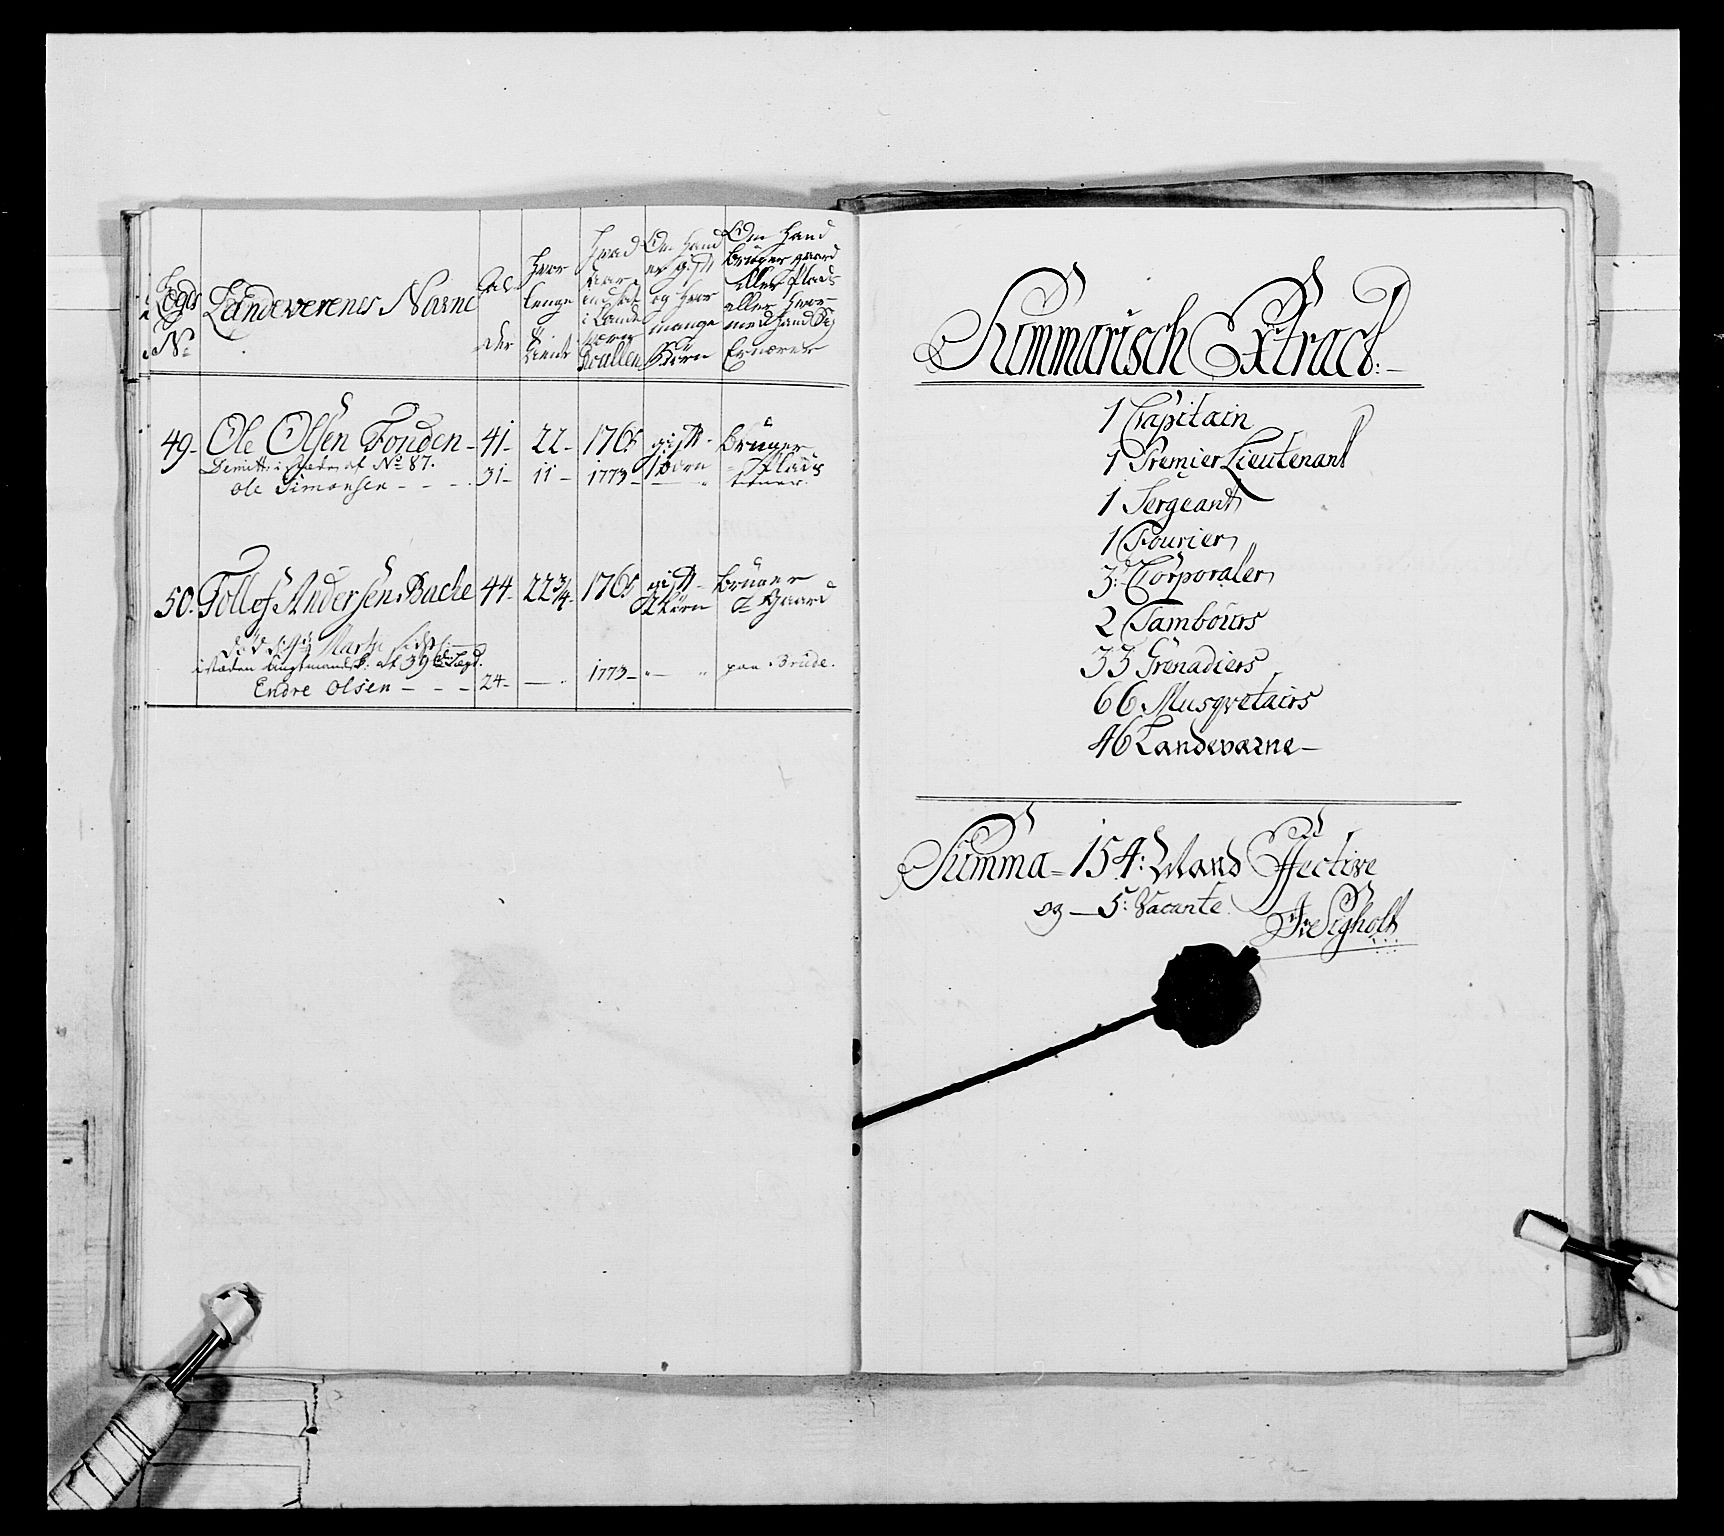 Legds
No
Landeverenes Navne
Al-
der
Hvor
lenge
tient
Hvad
Aar
i Lande
Om Hand
er gift
og hvor
mange
Børn
Om Hand
bruger gaard
eller Plads
eller hvor-
med Hand Sig
Ernærer
49- Ole Olsen Fonden- 41- 22- 1765 gift- bruger
Dimitt: i stæden af No 87. 1 barn Plads
Ole Simonsen - - - 31- 11- 1773-
50. Tollof Andersen Bache 44- 22 3/4- 1765 gift- bruger
2 Børn Gaard
i stæden af 39 Legd.
Endre Olsen - - - 24- 1773- paa Brude.
Summarisch Extract:-
1 Capitain
1 Premier Lieutenant
1 Sergeant
1 Fourier
3: Corporaler
2 Tambours
33 Grenadiers
66 Musqvetairs
46 Landeværne-
Summa = 154: Mand Effective
og - 5: Vacante